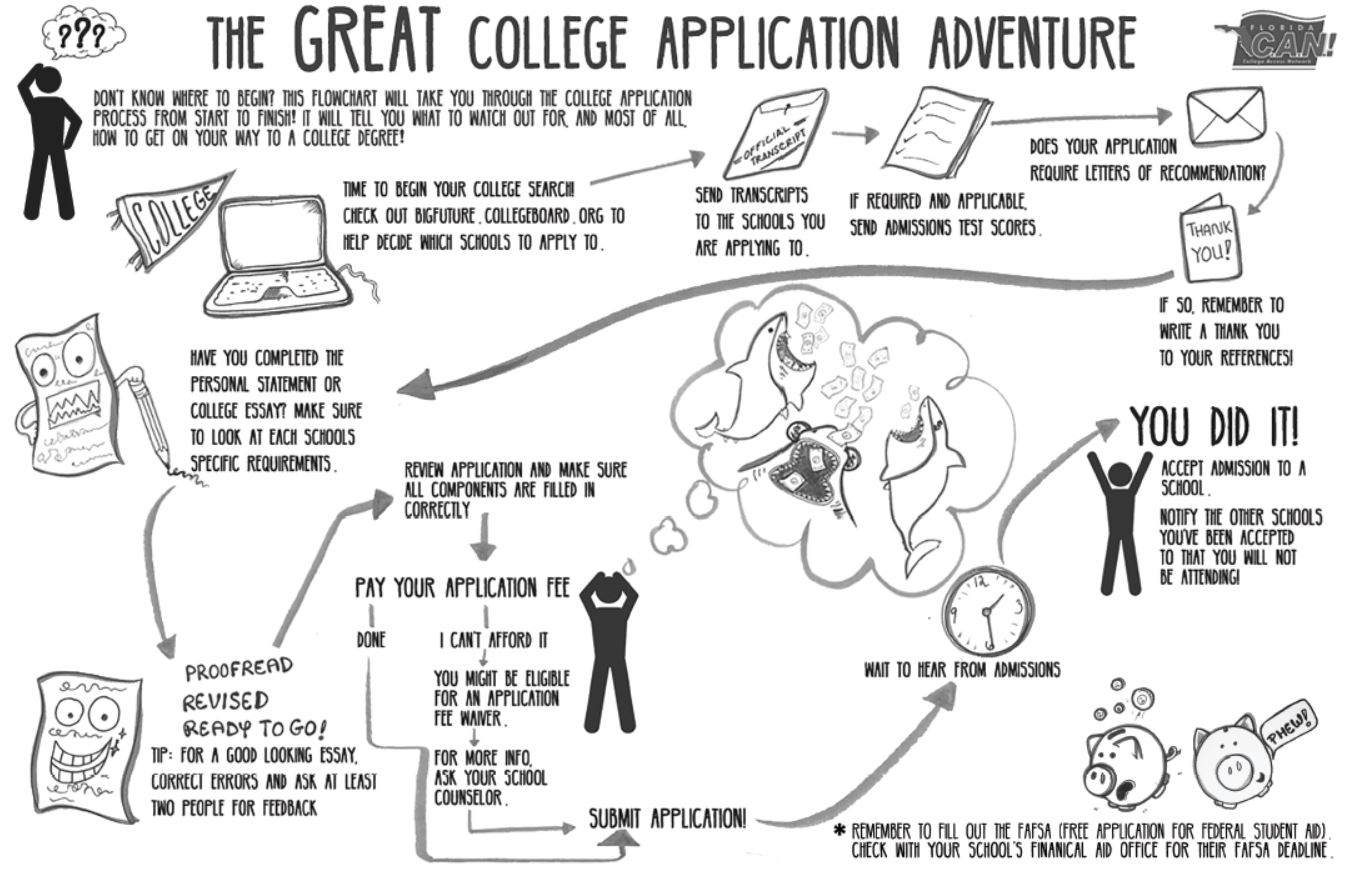 ???
THE GREAT COLLEGE APPLICATION ADVENTURE
FLORIDA
C.A.N!
College Access Network
DON'T KNOW WHERE TO BEGIN? THIS FLOWCHART WILL TAKE YOU THROUGH THE COLLEGE APPLICATION
PROCESS FROM START TO FINISH! IT WILL TELL YOU WHAT TO WATCH OUT FOR, AND MOST OF ALL,
HOW TO GET ON YOUR WAY TO A COLLEGE DEGREE!
COLLEGE
TIME TO BEGIN YOUR COLLEGE SEARCH!
CHECK OUT BIGFUTURE.COLLEGEBOARD.ORG TO
HELP DECIDE WHICH SCHOOLS TO APPLY TO.
OFFICIAL
TRANSCRIPT
SEND TRANSCRIPTS
TO THE SCHOOLS YOU
ARE APPLYING TO.
IF REQUIRED AND APPLICABLE,
SEND ADMISSIONS TEST SCORES.
DOES YOUR APPLICATION
REQUIRE LETTERS OF RECOMMENDATION?
THANK
YOU!
IF SO, REMEMBER TO
WRITE A THANK YOU
TO YOUR REFERENCES!
HAVE YOU COMPLETED THE
PERSONAL STATEMENT OR
COLLEGE ESSAY? MAKE SURE
TO LOOK AT EACH SCHOOLS
SPECIFIC REQUIREMENTS.
PROOFREAD
REVISED
READY TO GO!
TIP: FOR A GOOD LOOKING ESSAY,
CORRECT ERRORS AND ASK AT LEAST
TWO PEOPLE FOR FEEDBACK
REVIEW APPLICATION AND MAKE SURE
ALL COMPONENTS ARE FILLED IN
CORRECTLY
PAY YOUR APPLICATION FEE
DONE
I CAN'T AFFORD IT
YOU MIGHT BE ELIGIBLE
FOR AN APPLICATION
FEE WAIVER.
FOR MORE INFO,
ASK YOUR SCHOOL
COUNSELOR.
SUBMIT APPLICATION!
12
3
6
9
WAIT TO HEAR FROM ADMISSIONS
YOU DID IT!
ACCEPT ADMISSION TO A
SCHOOL.
NOTIFY THE OTHER SCHOOLS
YOU'VE BEEN ACCEPTED
TO THAT YOU WILL NOT
BE ATTENDING!
PHEW!
* REMEMBER TO FILL OUT THE FAFSA (FREE APPLICATION FOR FEDERAL STUDENT AID).
CHECK WITH YOUR SCHOOL'S FINANICAL AID OFFICE FOR THEIR FAFSA DEADLINE.